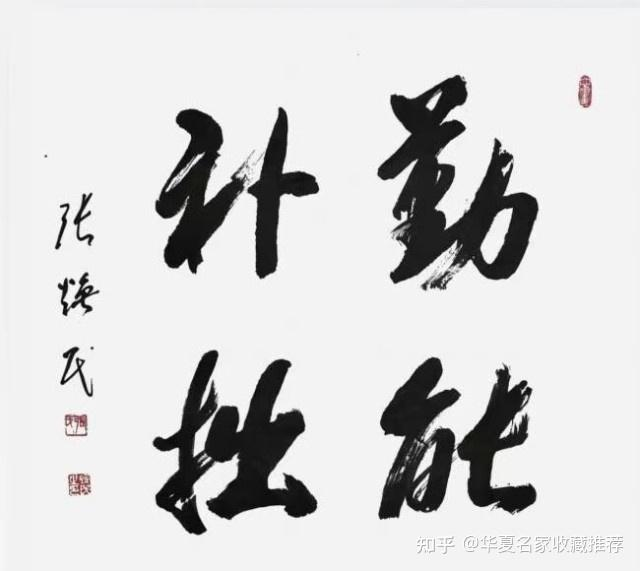 勤能
补拙
张焕民
知乎 @华夏名家收藏推荐